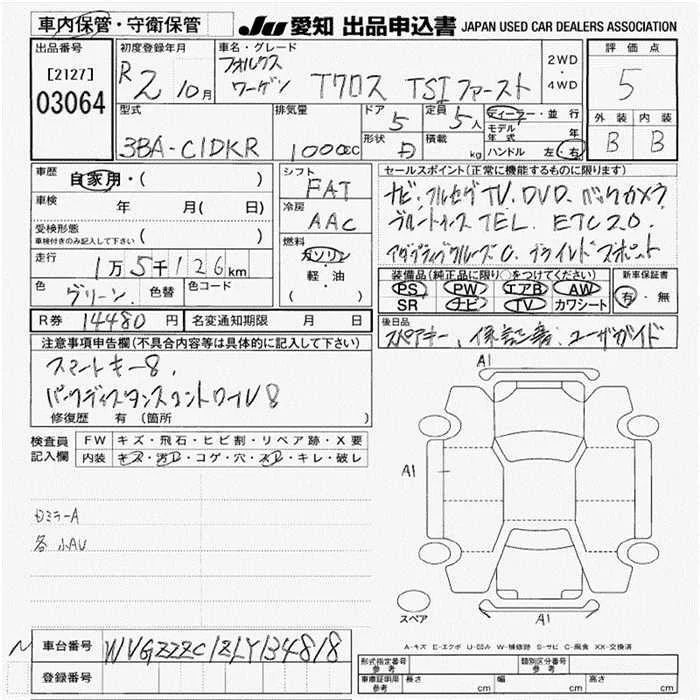 車内保管・守衛保管
JU 愛知 出品申込書 JAPAN USED CAR DEALERS ASSOCIATION
出品番号
[2127]
03064
初度登録年月
R2 10月
車名・グレード
フォルクス
ワーゲン Tクロス TSI ファースト
2WD
・
4WD
評価点
5
外装 内装
B B
型式
3BA-C1DKR
排気量
1000cc
ドア 5
形状
定員 5人
積載 kg
ディーラー・並行
モデル年式 年
ハンドル 左・右
車歴
自家用・( )
車検 年 月( 日)
受検形態
車検付きのみ記入して下さい ( )
走行 1万5千126km
色 グリーン 色替 色コード
R券 14480円 名変通知期限 月 日
シフト
FAT
冷房
AAC
燃料
ガソリン
軽・油
( )
セールスポイント(正常に機能するものに限ります)
ナビ、フルセグTV、DVD、バックカメラ
ブルートゥース TEL. ETC2.0.
アダプティブクルーズC. ブラインドスポット
装備品(純正品に限り○をつけてください)
PS PW エアB AW
SR ナビ TV カワシート
新車保証書
有・無
後日品
スペアキー、保証書、ユーザガイド
注意事項申告欄(不具合内容等は具体的に記入して下さい)
スマートキー8.
パークディスタンスコントロール8
修復歴 有 (箇所 )
検査員
記入欄
FW キズ・飛石・ヒビ割・リペア跡・X要
内装 キズ・汚レ・コゲ・穴・スレ・キレ・破レ
ロミラーA
各 小AU
A1
A1
A1
スペア
A-キズ E-エクボ U-凹み W-補修跡 S-サビ C-腐食 XX-交換済
車台番号 WVGZZZC1ZLY134818
登録番号
形式指定番号
参考
類別区分番号
参考
車庫証明用
参考
長さ cm 幅 cm 高さ cm